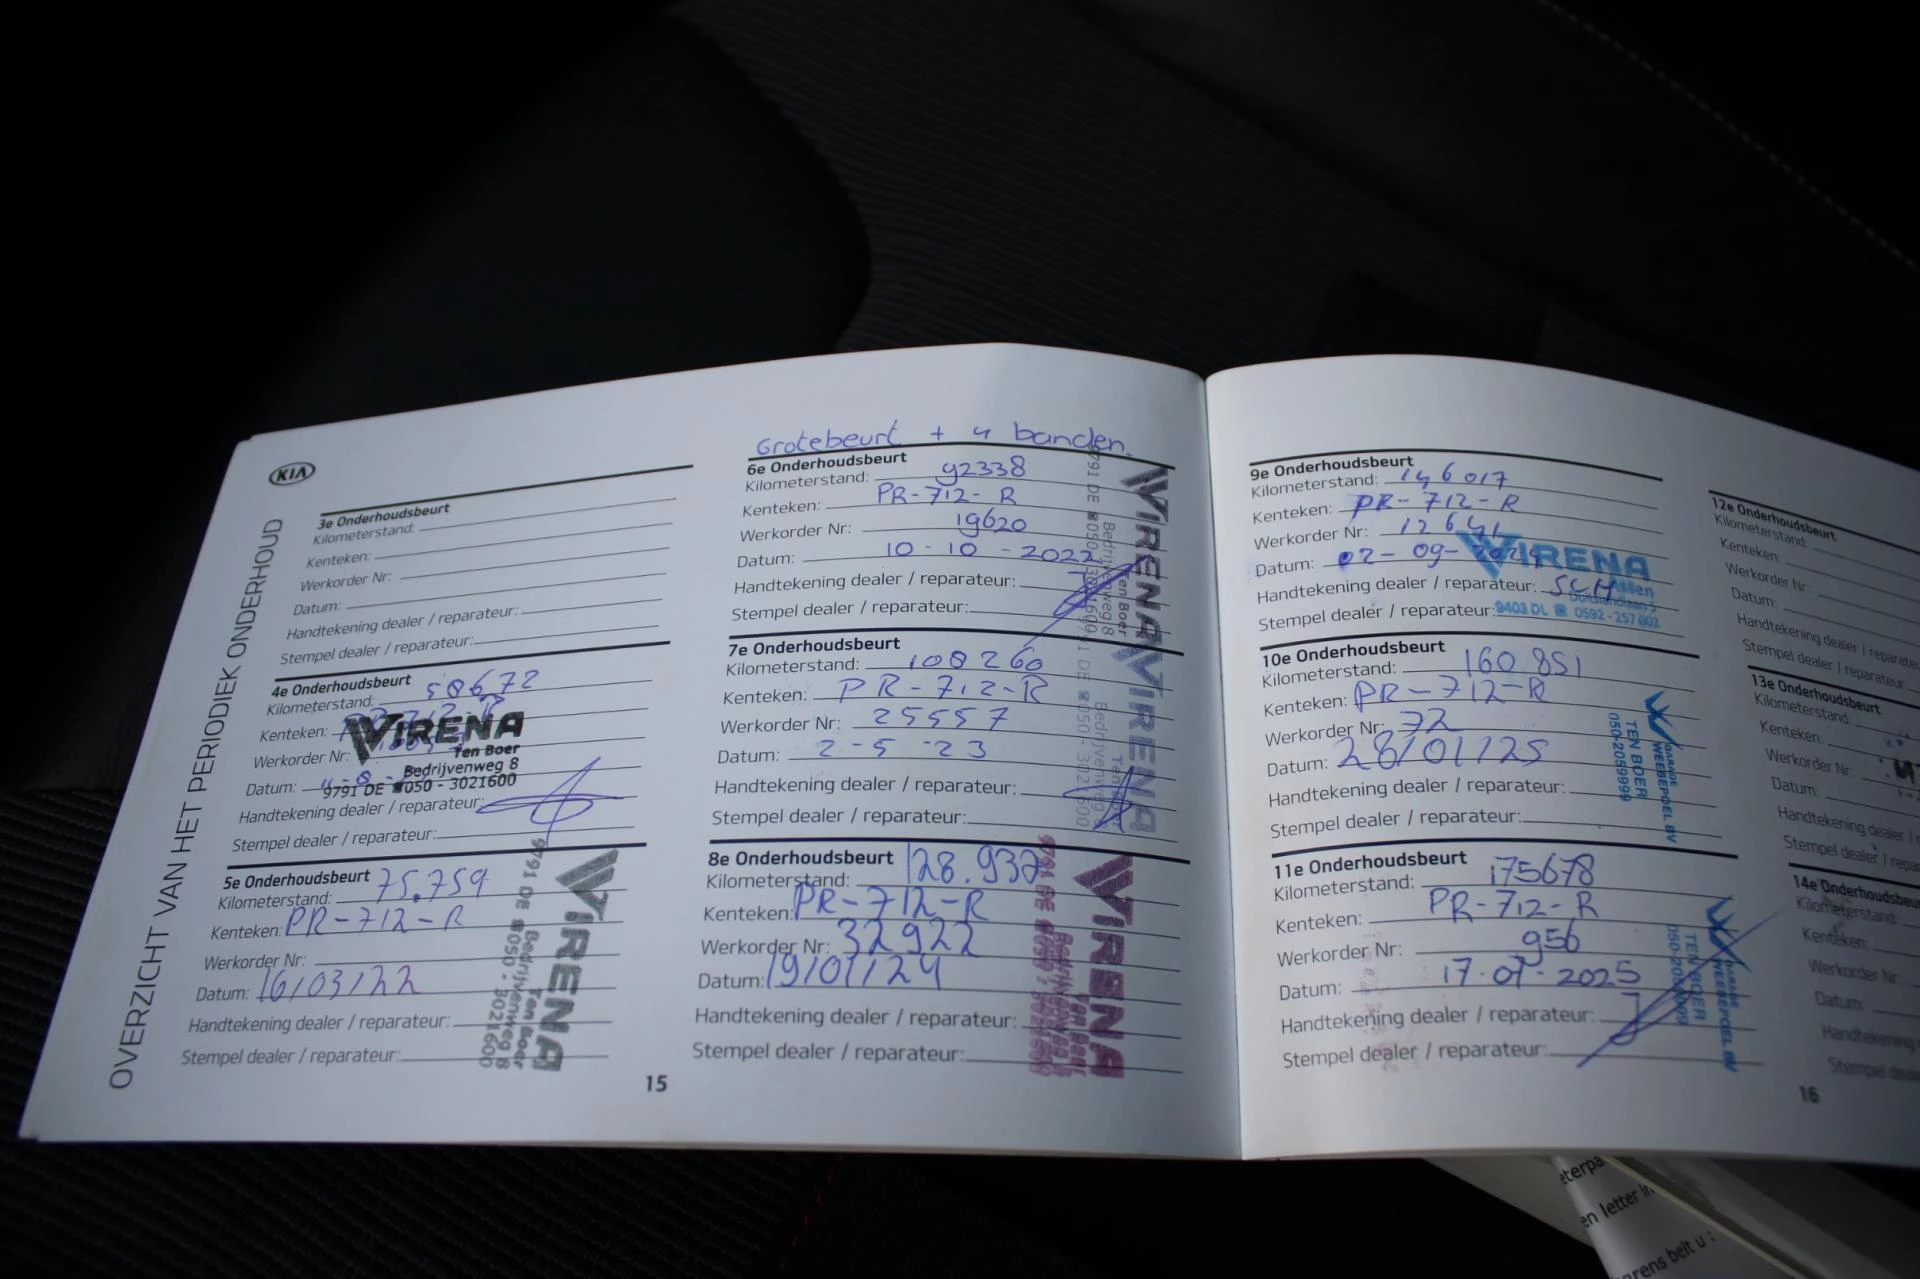 KIA
OVERZICHT VAN HET PERIODIEK ONDERHOUD
3e Onderhoudsbeurt
Kilometerstand:
Kenteken:
Werkorder Nr:
Datum:
Handtekening dealer / reparateur:
Stempel dealer / reparateur:
4e Onderhoudsbeurt
Kilometerstand: 58672
Kenteken:
Werkorder Nr:
Datum:
VIRENA
Ten Boer
Bedrijvenweg 8
9791 DE ☎050 - 3021600
Handtekening dealer / reparateur:
Stempel dealer / reparateur:
5e Onderhoudsbeurt
Kilometerstand: 75.759
Kenteken: PR-712-R
Werkorder Nr:
Datum: 16/03/22
Handtekening dealer / reparateur:
Stempel dealer / reparateur:
VIRENA
Ten Boer
Bedrijvenweg 8
9791 DE ☎050 - 3021600
Grotebeurt + 4 banden.
6e Onderhoudsbeurt
Kilometerstand: 92338
Kenteken: PR-712-R
Werkorder Nr: 19620
Datum: 10-10-2022
Handtekening dealer / reparateur:
Stempel dealer / reparateur:
VIRENA
Ten Boer
Bedrijvenweg 8
9791 DE ☎050 - 3021600
7e Onderhoudsbeurt
Kilometerstand: 108260
Kenteken: PR-712-R
Werkorder Nr: 25557
Datum: 2-5-23
Handtekening dealer / reparateur:
Stempel dealer / reparateur:
VIRENA
Ten Boer
Bedrijvenweg 8
9791 DE ☎050 - 3021600
8e Onderhoudsbeurt
Kilometerstand: 128.937
Kenteken: PR-712-R
Werkorder Nr: 32922
Datum: 19/01/24
Handtekening dealer / reparateur:
Stempel dealer / reparateur:
VIRENA
15
9e Onderhoudsbeurt
Kilometerstand: 146017
Kenteken: PR-712-R
Werkorder Nr: 12641
Datum: 02-09-2024
Handtekening dealer / reparateur: SCH
Stempel dealer / reparateur:
VIRENA
Assen
9403 DL ☎ 0592 - 257 002
10e Onderhoudsbeurt
Kilometerstand: 160.851
Kenteken: PR-712-R
Werkorder Nr: 72
Datum: 28/01/25
Handtekening dealer / reparateur:
Stempel dealer / reparateur:
GARAGE
WEEBEPOEL BV
TEN BOER
050-2059999
11e Onderhoudsbeurt
Kilometerstand: 175678
Kenteken: PR-712-R
Werkorder Nr: 956
Datum: 17-07-2025
Handtekening dealer / reparateur:
Stempel dealer / reparateur:
GARAGE
WEEBEPOEL BV
TEN BOER
050-2059999
12e Onderhoudsbeurt
Kilometerstand:
Kenteken:
Werkorder Nr:
Datum:
Handtekening dealer /
Stempel dealer / reparateur:
13e Onderhoudsbeurt
Kilometerstand:
Kenteken:
Werkorder Nr:
Datum:
Handtekening dealer /
Stempel dealer / repara
14e Onderhoudsbeu
Kilometerstand:
Kenteken:
Werkorder Nr:
Datum:
Handtekening
Stempel deal
16
en letter in
grens belt u :